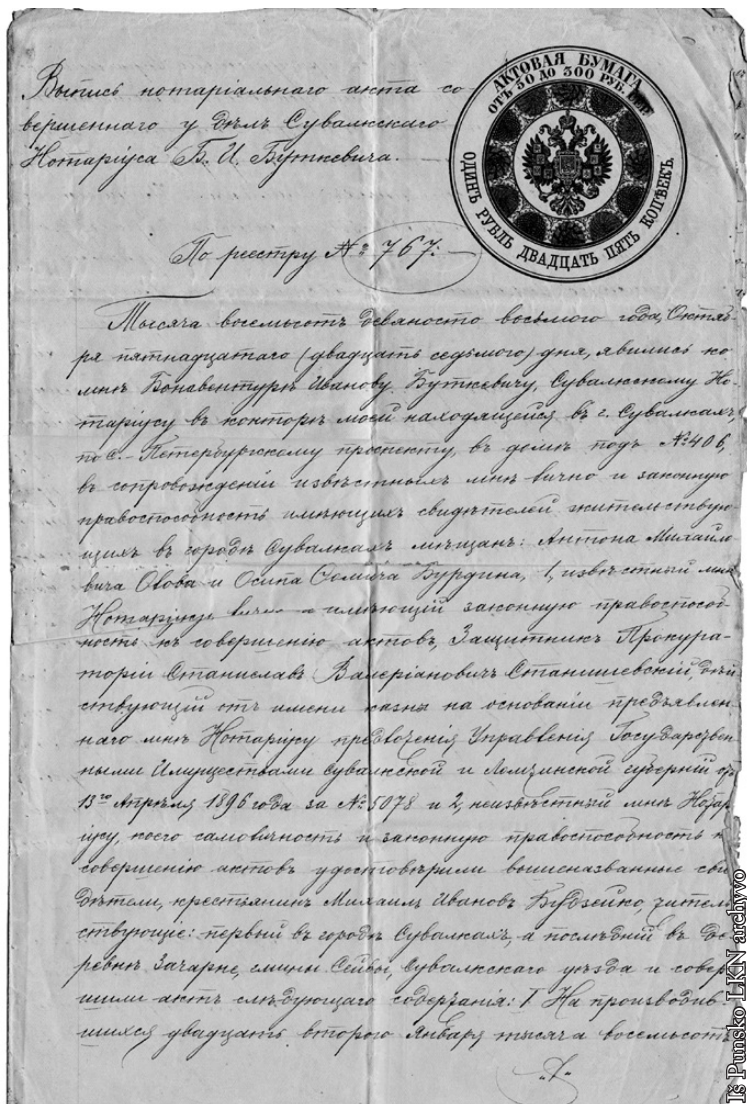 Выпись нотаріальнаго акта со-
вершеннаго у дѣлъ Сувалкскаго
Нотаріуса Б. И. Буткевича.
АКТОВАЯ БУМАГА
ОТЪ 50 ДО 300 РУБ.
ОДИНЪ РУБЛЬ ДВАДЦАТЬ ПЯТЬ КОПѢЕКЪ.
По реестру № 767.
Тысяча восемьсотъ девяносто восьмого года, Октяб-
ря пятнадцатаго (двадцать седьмого) дня, явились ко
мнѣ Бонавентурѣ Иванову Буткевичу, Сувалкскому Но-
таріусу въ конторѣ моей находящейся въ г. Сувалкахъ,
по С.-Петербургскому проспекту, въ домѣ подъ № 406,
въ сопровожденіи извѣстныхъ мнѣ лично и законную
правоспособность имѣющихъ свидѣтелей жительствую-
щихъ въ городѣ Сувалкахъ мѣщанъ: Антона Михайло
вича и Осипа Бурдина, 1, извѣстный мнѣ
Нотаріусу лично и имѣющій законную правоспособ
ность къ совершенію актовъ, Защитникъ Прокура-
торіи Станиславъ Валеріановичъ Станишевскій, дѣй
ствующій отъ имени казны на основаніи предъявлен-
наго мнѣ Нотаріусу предложенія Управленія Государствен-
ными Имуществами Сувалкской и Ломжинской губерній отъ
13го Апрѣля 1896 года за № 5078 и 2, неизвѣстный мнѣ Нотар
іусу, коего самоличность и законную правоспособность къ
совершенію актовъ удостовѣрили вышеназванные сви
дѣтели, крестьянинъ Михаилъ Ивановъ Будзейко, жител
ствующіе: первый въ городѣ Сувалкахъ, а послѣдній въ де
ревнѣ Зачарне, гмины Сейвы, Сувалкскаго уѣзда и совер
шили актъ слѣдующаго содержанія: I. На производив-
шихся двадцать второго Января тысяча восемьсотъ
Iš Punsko LKN archyvo